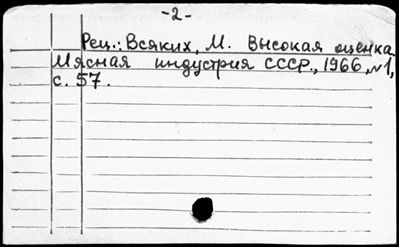 -2-
Рец.: Всяких, М. Высокая оценка
Мясная индустрия СССР., 1966, №1,
с. 57.